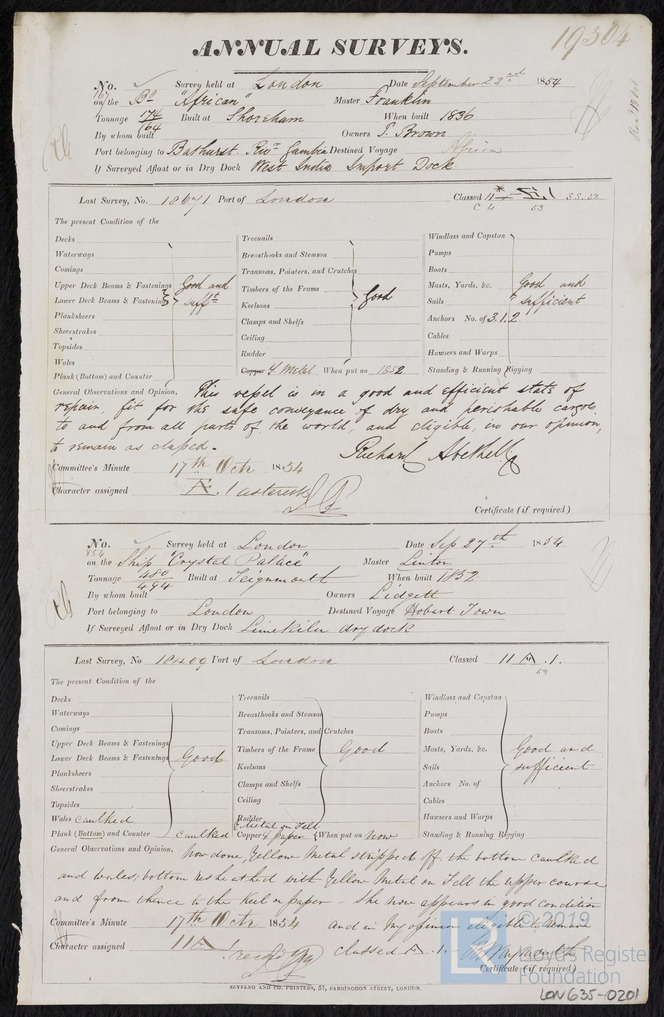 19304
ANNUAL SURVEYS.
No. Survey held at London Date September 22nd 1854
on the Bq "African" Master Franklin
Tonnage 174/164 Built at Shoreham When built 1836
By whom built Owners Brown
Port belonging to Bathurst Rivr Gambia Destined Voyage Africa
If Surveyed Afloat or in Dry Dock West India Import Dock
Last Survey, No. 18671 Port of London Classed
The present Condition of the
Decks
Waterways
Comings
Upper Deck Beams & Fastenings
Lower Deck Beams & Fastenings
Planksheers
Sheerstrakes
Topsides
Wales
Plank (Bottom) and Counter
Good and
sufft
Treenails
Breasthooks and Stemson
Transoms, Pointers, and Crutches
Timbers of the Frame
Keelsons
Clamps and Shelfs
Ceiling
Rudder
Copper Y Metal When put on 1852
Good
Windlass and Capstan
Pumps
Boats
Masts, Yards, &c.
Sails
Anchors No. of 3.1.2
Cables
Hawsers and Warps
Standing & Running Rigging
Good and
sufficient
General Observations and Opinion, This vessel is in a good and efficient state of
repair, fit for the safe conveyance of dry and perishable cargoes
to and from all parts of the world, and eligible, in our opinion,
to remain as classed.
Richard Abethell
Committee's Minute 17th Octr 1854
Character assigned A.1 asterisk
Certificate (if required)
No. 854 Survey held at London Date Sep 27th 1854
on the Ship "Crystal Palace" Master Linton
Tonnage 480/494 Built at Teignmouth When built 1852
By whom built Owners Lidgett
Port belonging to London Destined Voyage Hobart Town
If Surveyed Afloat or in Dry Dock Limekiln dry dock
Last Survey, No 18409 Port of London Classed 11 A.1.
The present Condition of the
Decks
Waterways
Comings
Upper Deck Beams & Fastenings
Lower Deck Beams & Fastenings
Planksheers
Sheerstrakes
Topsides
Wales caulked
Plank (Bottom) and Counter caulked
Good
Treenails
Breasthooks and Stemson
Transoms, Pointers, and Crutches
Timbers of the Frame
Keelsons
Clamps and Shelfs
Ceiling
Rudder
Y Metal on Felt
Copper & paper When put on Now
Good
Windlass and Capstan
Pumps
Boats
Masts, Yards, &c.
Sails
Anchors No. of
Cables
Hawsers and Warps
Standing & Running Rigging
Good and
sufficient
General Observations and Opinion, Now done, Yellow Metal stripped off the bottom caulked
and wales; bottom resheathed with Yellow Metal on Felt the upper course
and from thence to the Keel on paper - She now appears in good condition
and in my opinion eligible to remain
Committee's Minute 17th Octr 1854
Character assigned 11 A 1 classed A.1.
Certificate (if required)
SKYFANG AND CO. PRINTERS, 57, FARRINGDON STREET, LONDON.
© 2019
Lloyd's Register
Foundation
LON635-0201